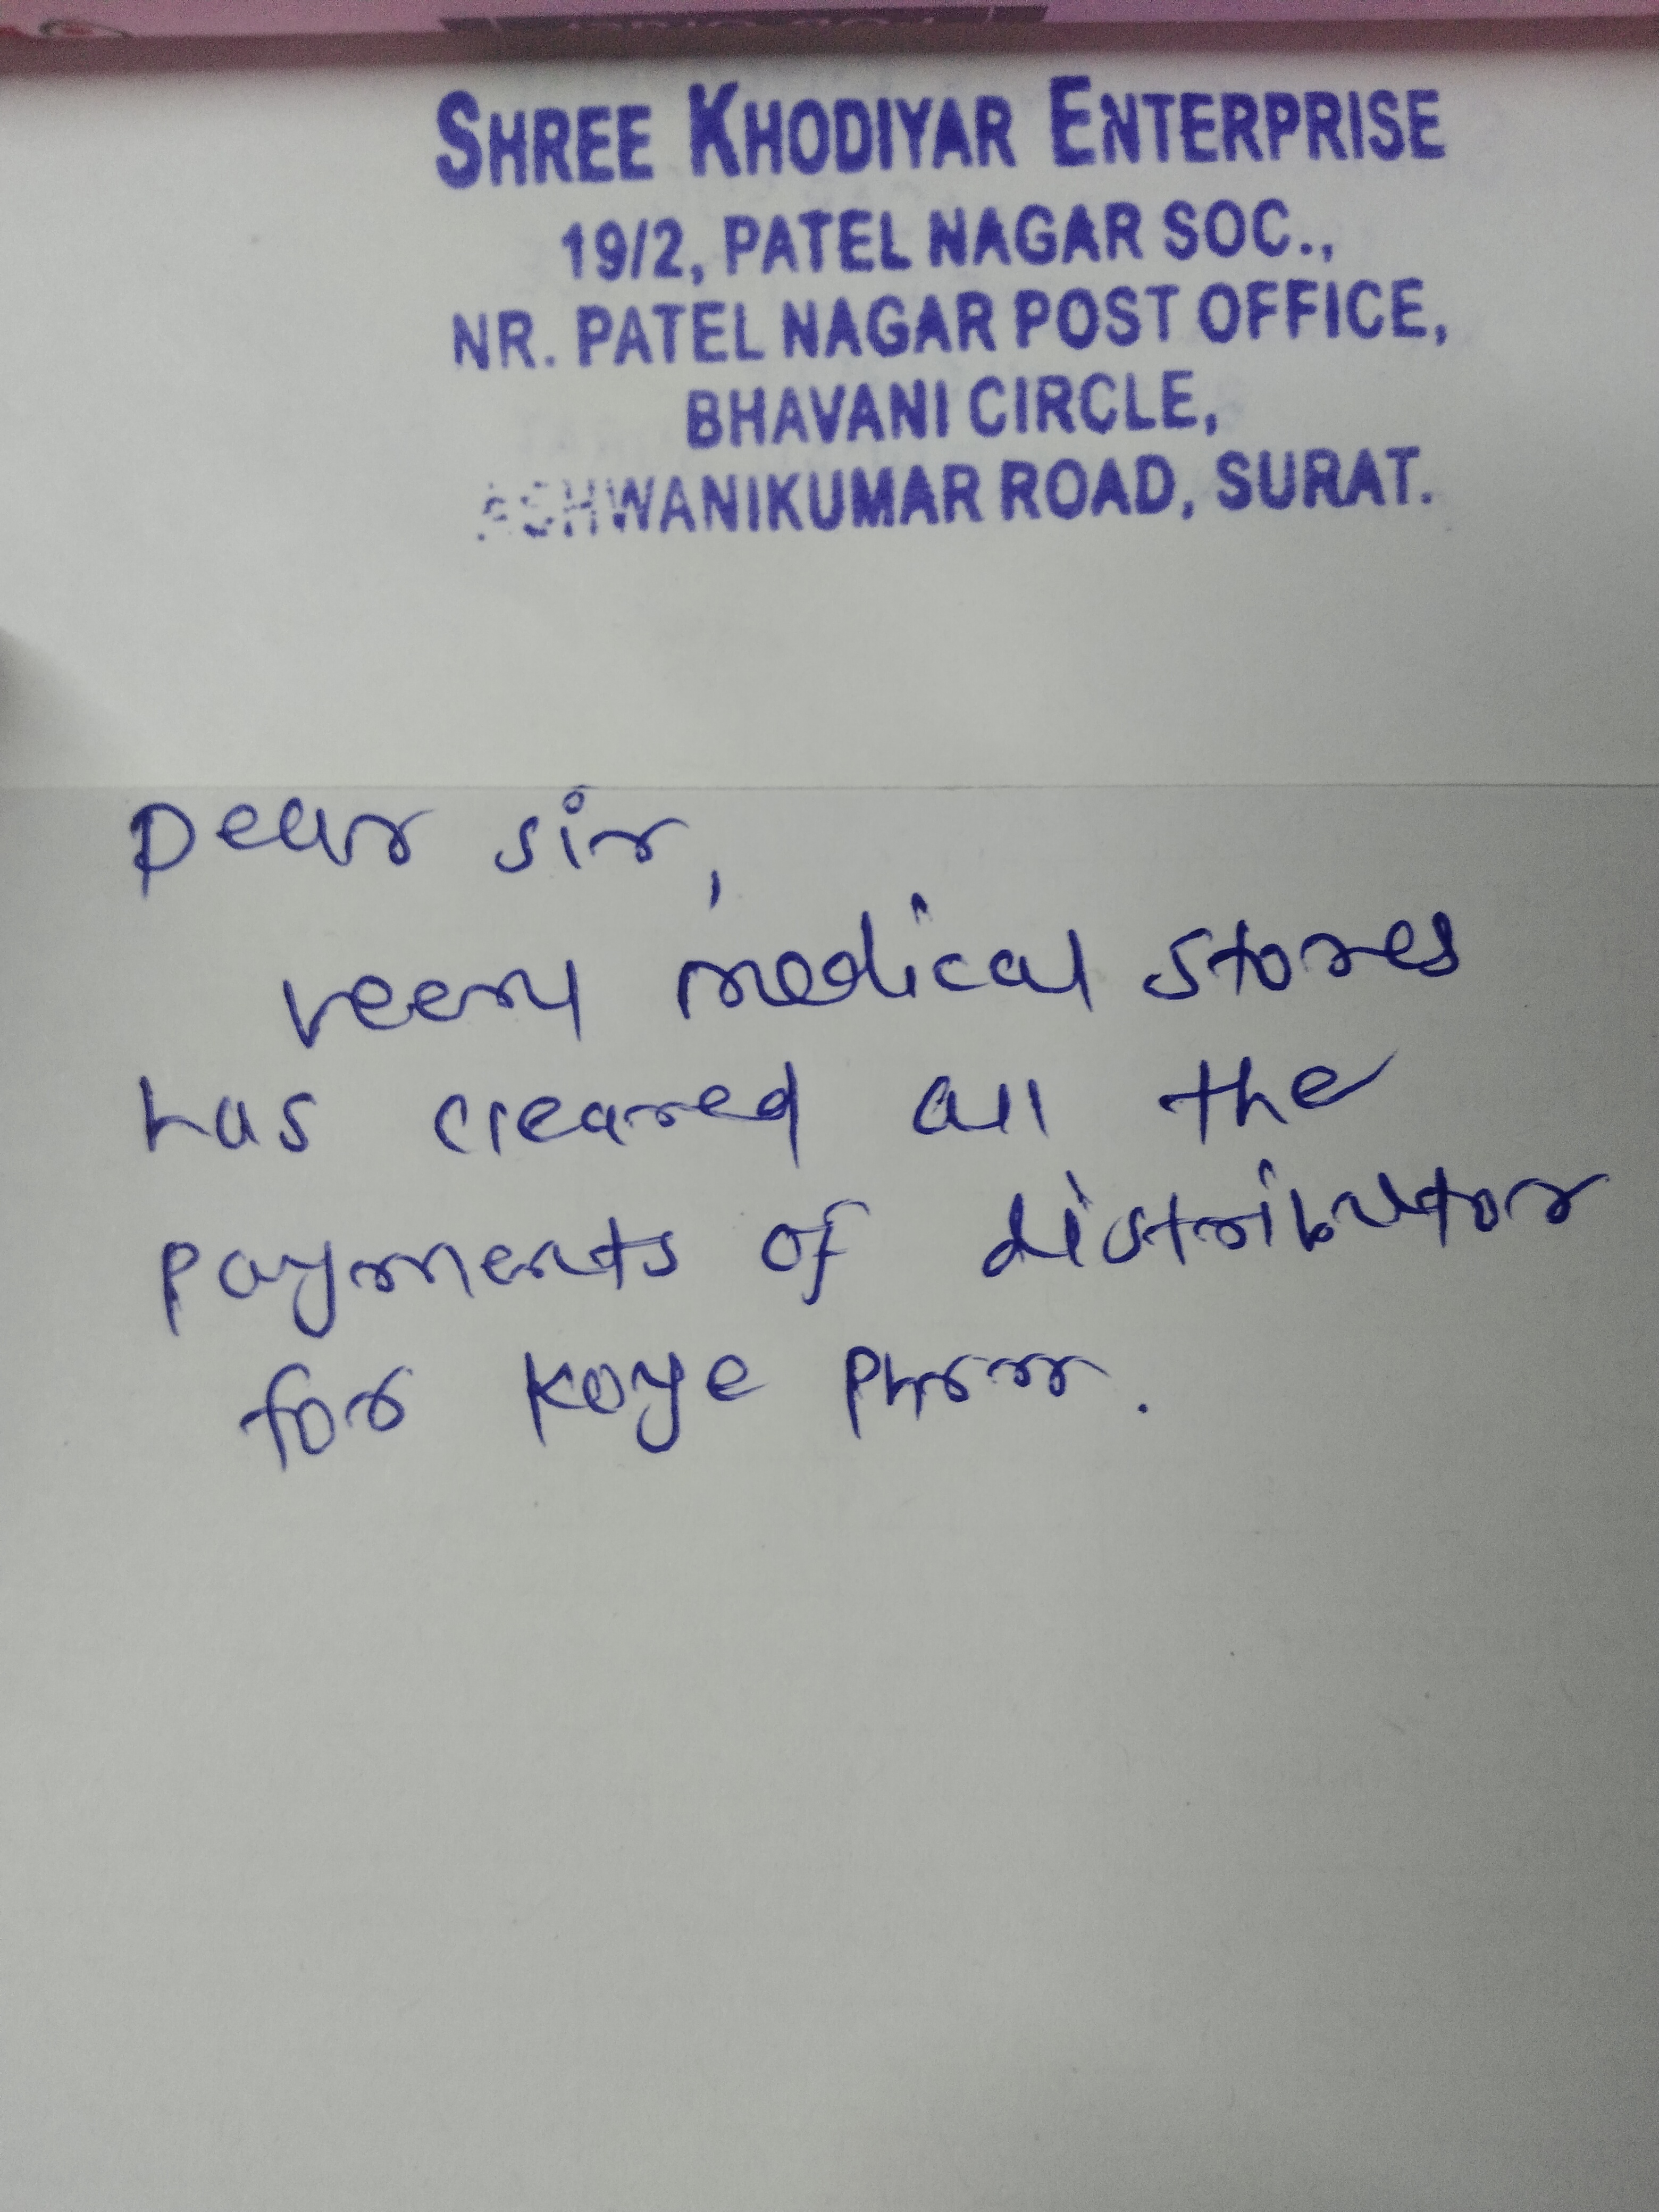 SHREE KHODIYAR ENTERPRISE
19/2, PATEL NAGAR SOC.,
NR. PATEL NAGAR POST OFFICE,
BHAVANI CIRCLE,
ASHWANIKUMAR ROAD, SURAT.
Dear sir,
medical stores
has cleared all the
payments of distributor
for Koye